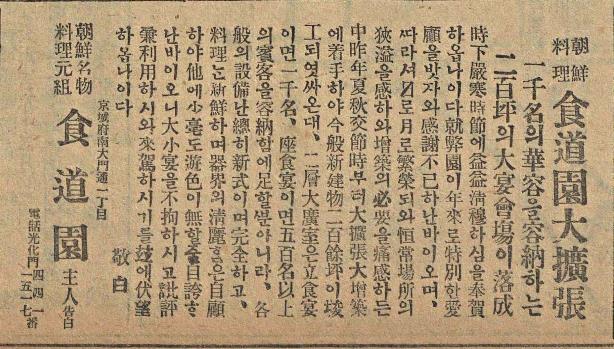 朝鮮料理 食道園大擴張
一千名의華容을容納하는
二百坪의大宴會塲이落成
時下嚴寒時節에益益淸穆하심을奉賀
하옵나이다就弊園이年來로特別한愛
顧를밧자와感謝不已하난바이오며、
따라셔日로月로繁榮되와恒常場所의
狹溢을感하와增築의必要을痛感하든
中昨年夏秋交節時부터大擴張大增築
에着手하야今般新建物二百餘坪이竣
工되엿싸온대、二層大廣室은立食宴
이면一千名、座食宴이면五百名以上
의賓客을容納함에足할뿐아니라、各
般의設備난總히新式이며完全하고、
料理는新鮮하며器界의淸麗홈은自顧
하야他에小毫도遊色이無함을自誇하
난바이오니大小宴을不拘하시고批評
兼利用하시와來駕하시기를玆에伏望
하옵나이다
敬白
京城府南大門通一丁目
朝鮮名物
料理元組
食道園 主人告白
電話光化門 四四一
一五一七番